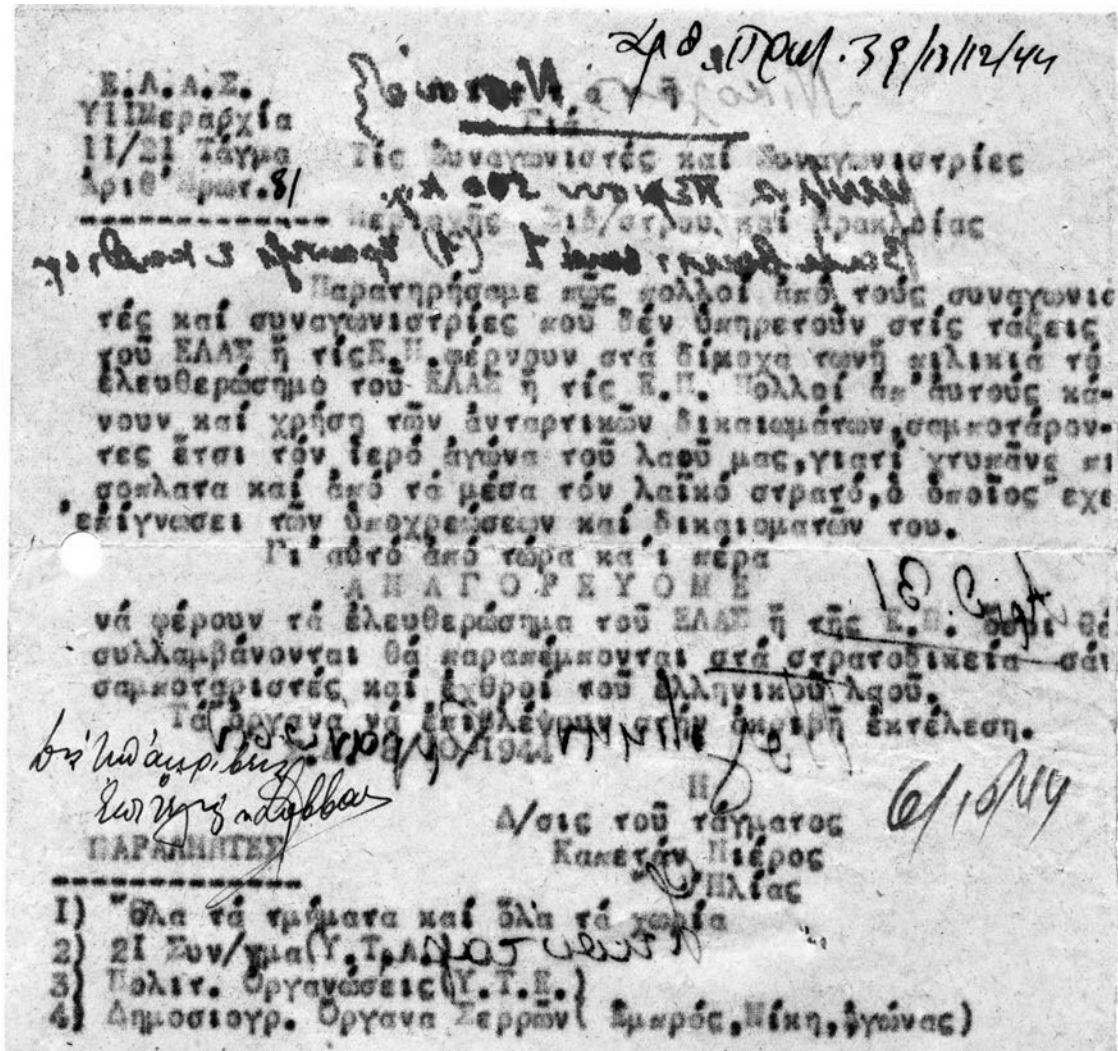 Αριθ. Πρωτ. 39/13/12/44
Ε.Λ.Α.Σ.
VIΙΜεραρχία
ΙΙ/2Ι Τάγμα
Αριθ Πρωτ. 81
Γιά
Τίς Συναγωνιστές καί Συναγωνιστρίες
Περιοχῆς Σιδ/στρου καί Ηρακλείας
Παρατηρήσαμε πῶς πολλοί ἀπό τούς συναγωνισ
τές καί συναγωνιστρίες πού δέν ὑπηρετοῦν στίς τάξεις
τοῦ ΕΛΑΣ ἤ τίςΕ.Π.φέρνουν στά δίκοχα τωνἤ πιλικιά τό
ἐλευθερώσημο τοῦ ΕΛΑΣ ἤ τίς Ε.Π. Πολλοί ἀπ αὐτούς κά-
νουν καί χρήση τῶν ἀνταρτικῶν δικαιωμάτων,σαμποτάρον-
τες ἔτσι τόν ἱερό ἀγώνα τοῦ λαοῦ μας,γιατί χτυπᾶνε πι
σοπλατα καί ἀπό τά μέσα τόν λαϊκό στρατό,ὁ ὁποῖος ἔχε
ἐπίγνωσει τῶν ὑποχρεώσεων καί δικαιοματῶν του.
Γι αὐτό ἀπό τώρα κα ί πέρα
ΑΠΑΓΟΡΕΥΟΜΕ
νά φέρουν τά ἐλευθερώσημα τοῦ ΕΛΑΣ ἤ τῆς Ε.Π. ὅσοι θά
συλλαμβάνονται θά παραπέμπονται στά στρατοδικεία σάν
σαμποταριστές καί ἐχθροί τοῦ ἑλληνικοῦ λαοῦ.
Τά ὄργανα νά ἐπιβλέψουν στήν ἀκριβῆ ἐκτέλεση.
1944
Η
Δ/σις τοῦ τάγματος
Καπετάν Πιέρος
Ηλίας
6/10/44
ΠΑΡΑΛΗΠΤΕΣ
Ι) Ὅλα τά τμήματα καί ὅλα τά χωρία
2) 2Ι Συν/γμα(Υ.Τ.Α.
3) Πολιτ. Ὀργανώσεις(Υ.Τ.Ε.)
4) Δημοσιογρ. Ὄργανα Σερρῶν( Ἐμπρός,Νίκη,Ἀγώνας)